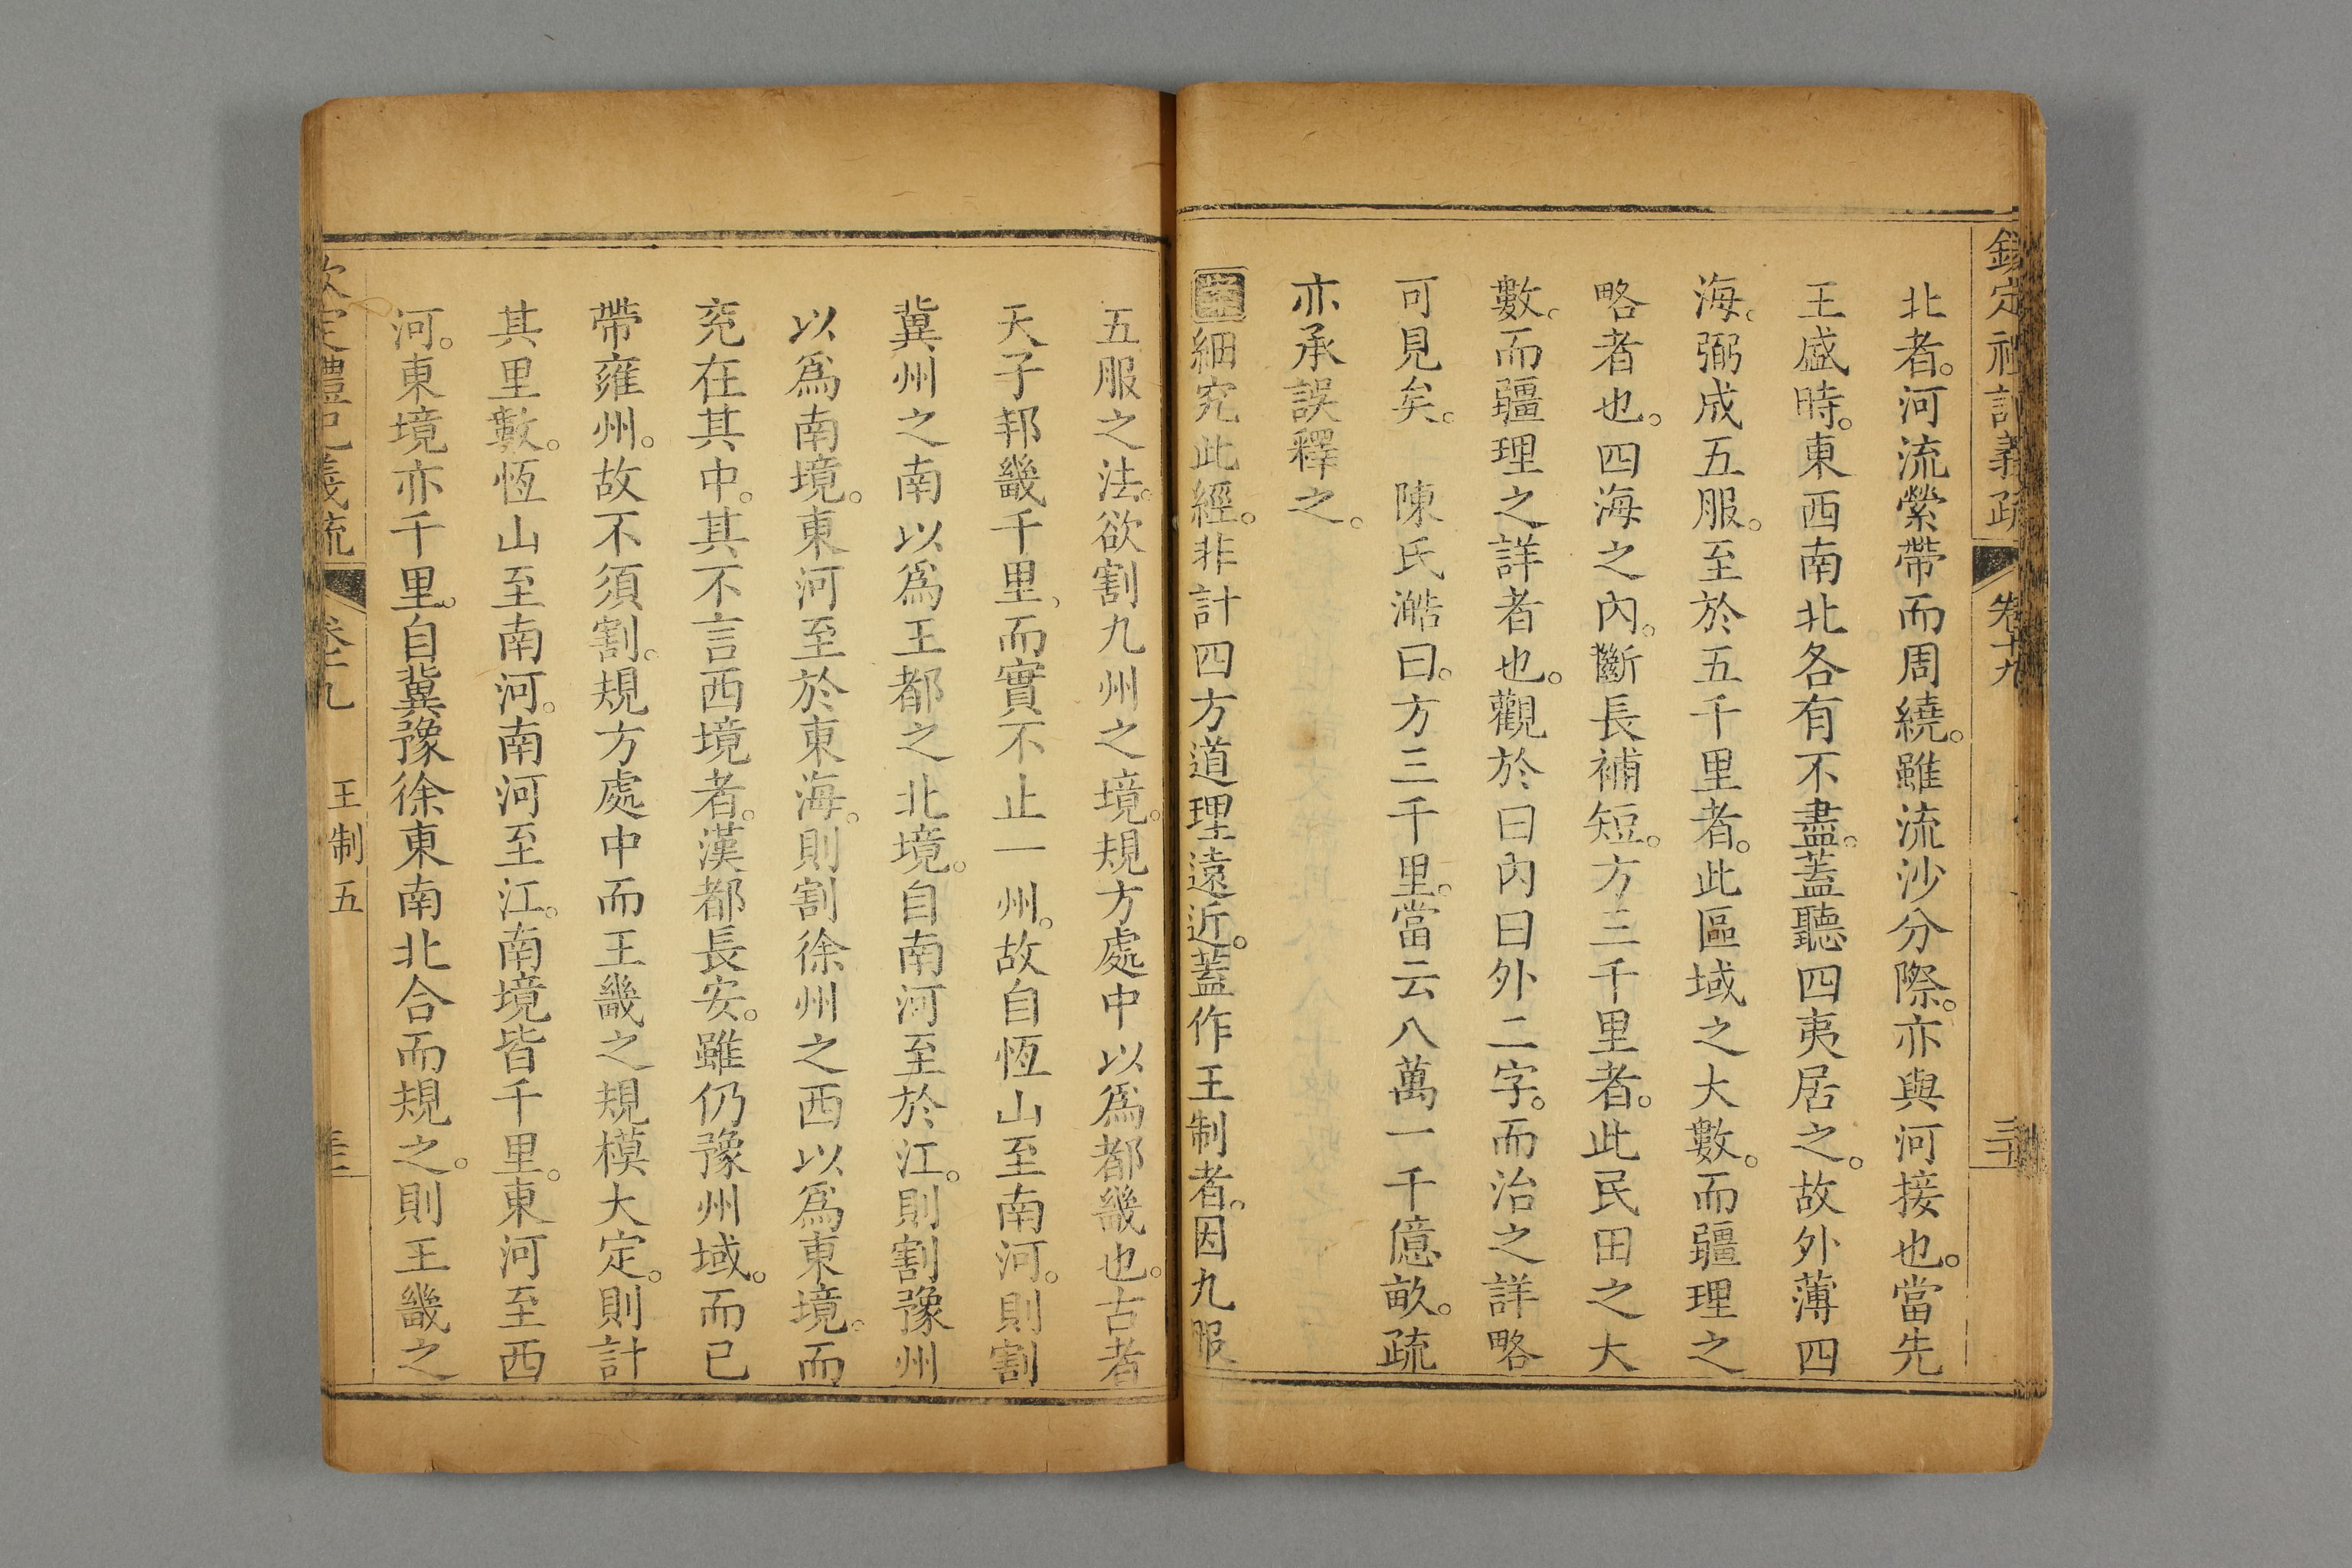 欽定禮記義疏 卷十九
北者。河流縈帶而周繞。雖流沙分際。亦與河接也。當先
王盛時。東西南北各有不盡。蓋聽四夷居之。故外薄四
海。弼成五服。至於五千里者。此區域之大數。而疆理之
略者也。四海之內。斷長補短。方三千里者。此民田之大
數。而疆理之詳者也。觀於曰內曰外二字。而治之詳略
可見矣。 陳氏澔曰。方三千里。當云八萬一千億畝。疏
亦承誤釋之。
細究此經。非計四方道理遠近。蓋作王制者。因九服
五服之法。欲割九州之境。規方處中以為都畿也。古者
天子邦畿千里、而實不止一州。故自恆山至南河。則割
冀州之南以為王都之北境。自南河至於江。則割豫州
以為南境。東河至於東海。則割徐州之西以為東境。而
兗在其中。其不言西境者。漢都長安。雖仍豫州域。而已
帶雍州。故不須割。規方處中而王畿之規模大定。則計
其里數。恆山至南河。南河至江。南境皆千里。東河至西
河。東境亦千里。自冀豫徐東南北合而規之。則王畿之
欽定禮記義疏 卷十九 王制五